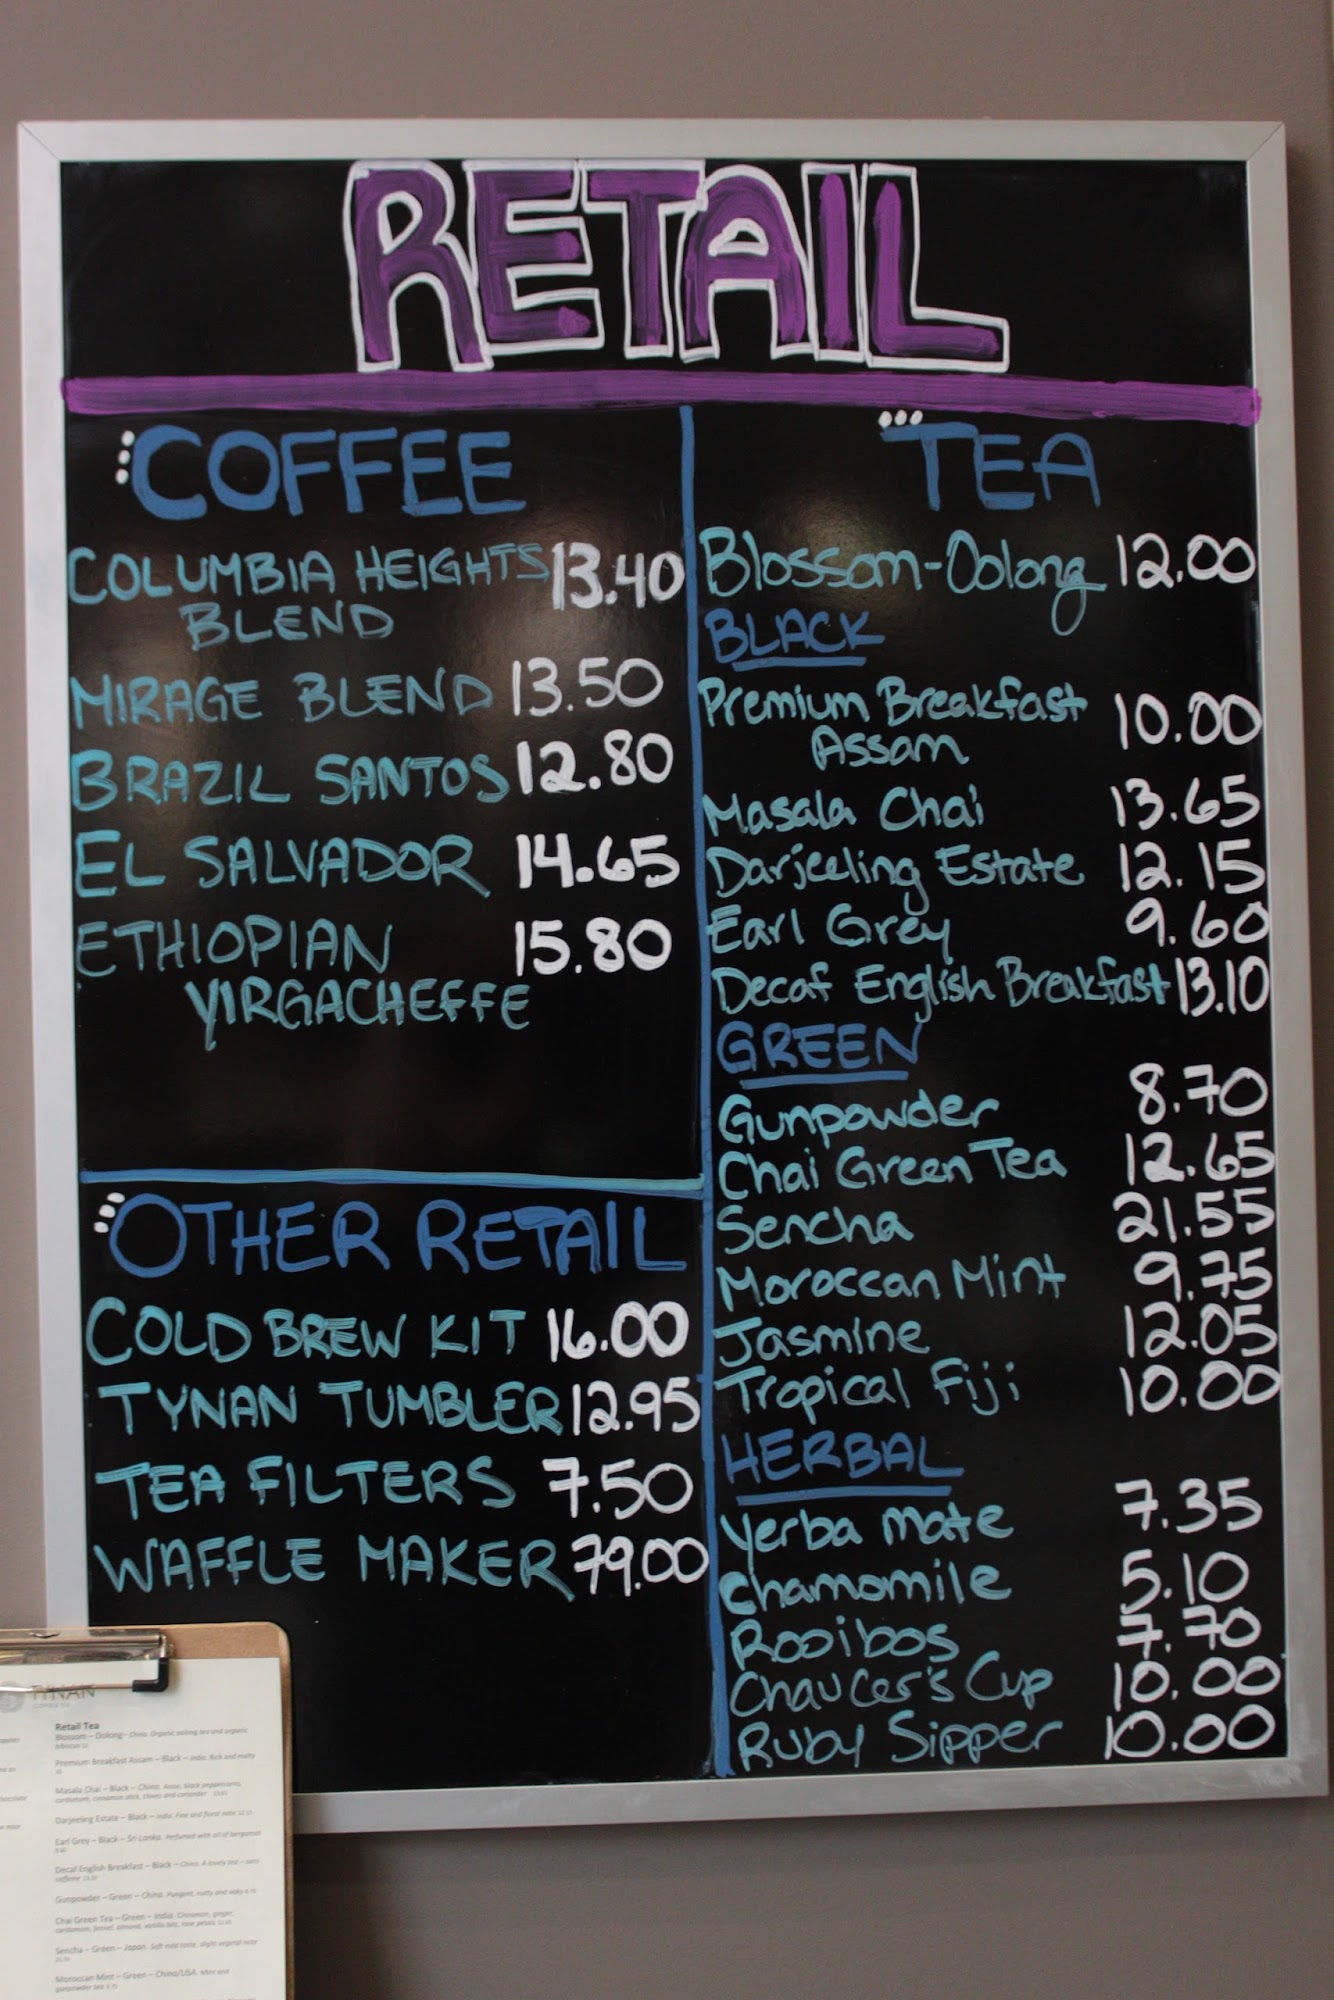 RETAIL
COFFEE
COLUMBIA HEIGHTS 13.40
BLEND
MIRAGE BLEND 13.50
BRAZIL SANTOS 12.80
EL SALVADOR 14.65
ETHIOPIAN 15.80
YIRGACHEFFE
OTHER RETAIL
COLD BREW KIT 16.00
TYNAN TUMBLER 12.95
TEA FILTERS 7.50
WAFFLE MAKER 79.00
TEA
Blossom-Oolong 12.00
BLACK
Premium Breakfast 10.00
Assam
Masala Chai 13.65
Darjeeling Estate 12.15
Earl Grey 9.60
Decaf English Breakfast 13.10
GREEN
Gunpowder 8.70
Chai Green Tea 12.65
Sencha 21.55
Moroccan Mint 9.75
Jasmine 12.05
Tropical Fiji 10.00
HERBAL
Yerba Mate 7.35
Chamomile 5.10
Rooibos 7.70
Chaucer's Cup 10.00
Ruby Sipper 10.00
TYNAN
Retail Tea
Blossom – Oolong – China. Organic oolong tea and organic
hibiscus 12
Premium Breakfast Assam – Black – India. Rich and malty
10
Masala Chai – Black – China. Anise, black peppercorns,
cardamom, cinnamon stick, cloves and coriander 13.65
Darjeeling Estate – Black – India. Fine and floral note 12.15
Earl Grey – Black – Sri Lanka. Perfumed with oil of bergamot
9.60
Decaf English Breakfast – Black – China. A lovely tea – sans
caffeine 13.10
Gunpowder – Green – China. Pungent, nutty and oaky 8.70
Chai Green Tea – Green – India. Cinnamon, ginger,
cardamom, fennel, almond, vanilla bits, rose petals 12.65
Sencha – Green – Japan. Soft mild taste, slight vegetal note
21.55
Moroccan Mint – Green – China/USA. Mint and
gunpowder tea 9.75